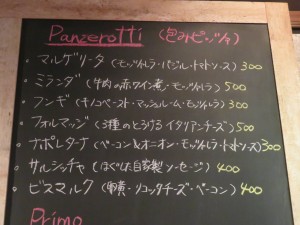 Panzerotti (包みピッツァ)
・マルゲリータ (モッツァレラ・バジル・トマトソース) 300
・ミランダ (牛肉の赤ワイン煮・モッツァレラ) 500
・フンギ (キノコペースト・マッシュルーム・モッツァレラ) 300
・フォルマッジ (3種のとろけるイタリアンチーズ) 500
・ナポレターナ (ベーコン&オニオン・モッツァレラ・トマトソース) 300
・サルシッチャ (ほぐした自家製ソーセージ) 400
・ビスマルク (卵黄・リコッタチーズ・ベーコン) 400
Primo